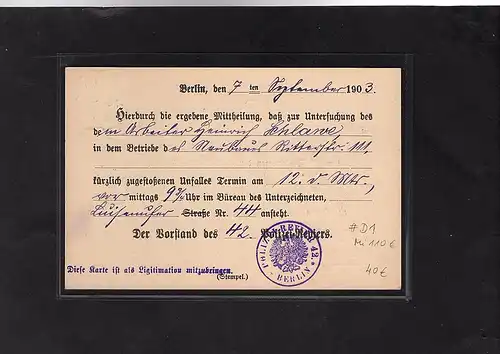 Berlin, den 7 ten September 1903.
Hierdurch die ergebene Mittheilung, daß zur Untersuchung des
dem Arbeiter Heinrich Schlawe,
in dem Betriebe des Neubaues Ritterstr. 111,
kürzlich zugestoßenen Unfalles Termin am 12. d. Mts.,
vor mittags 9¾ Uhr im Büreau des Unterzeichneten,
Luisenufer Straße Nr. 44 ansteht.
Der Vorstand des 42. Polizei-Reviers.
#D1
Mi 110€
40€
Diese Karte ist als Legitimation mitzubringen.
(Stempel.)
POLIZEI-REVIER 42.
* BERLIN *